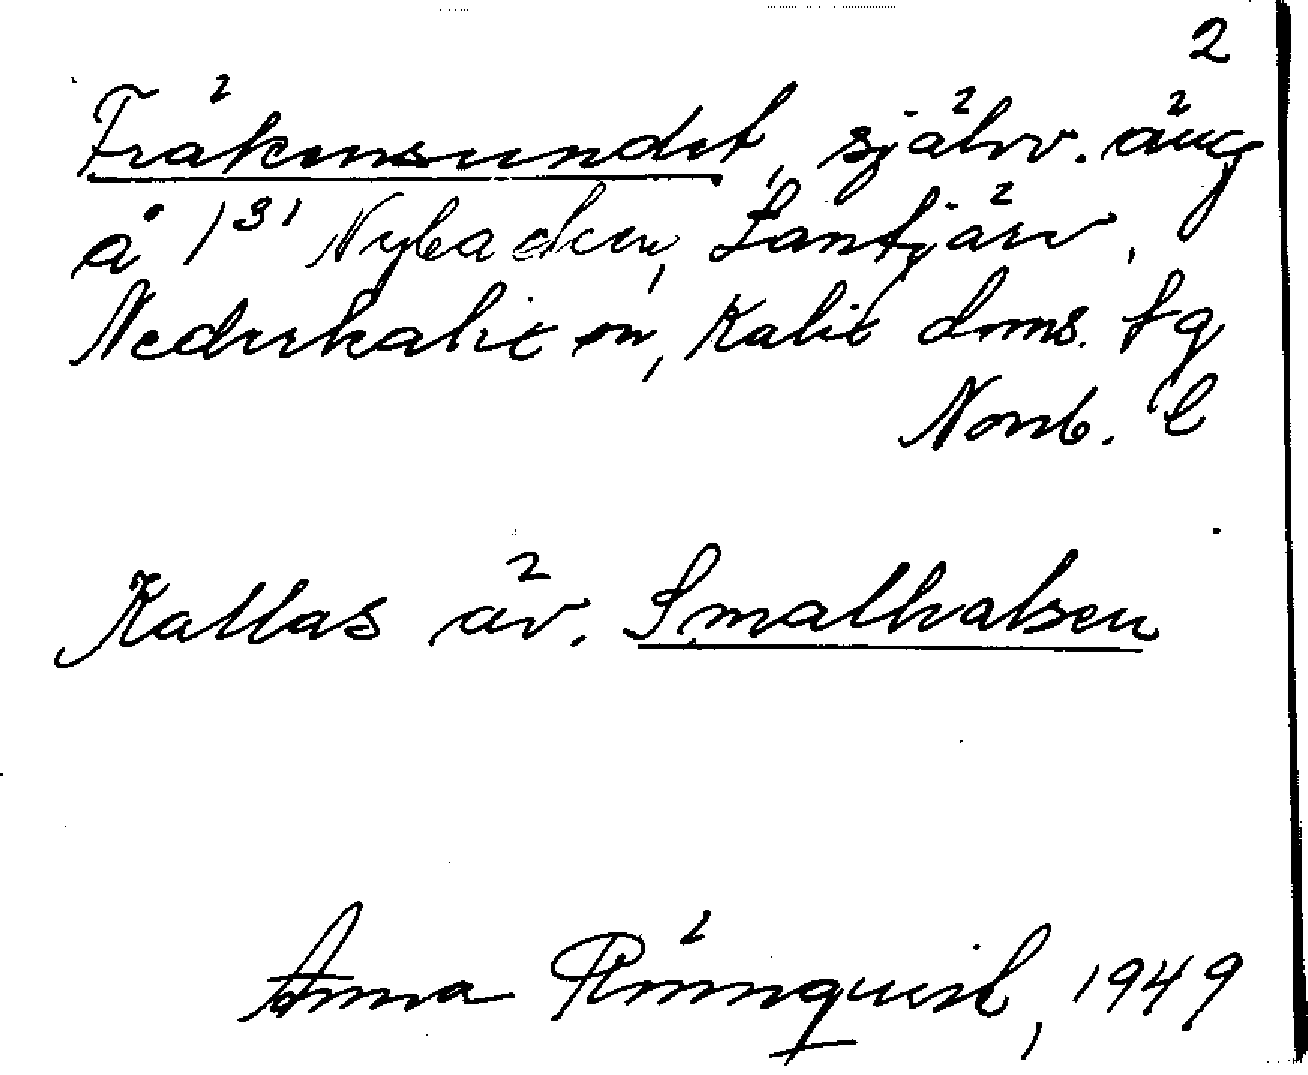 2
Fräkensundet, självv. äng
å 1³¹ Nybacken, Lantjärv,
Nederkalix sn, Kalix doms. fg
Norrb. l
Kallas äv. Smalhalsen
Anna Rönnquist, 1949